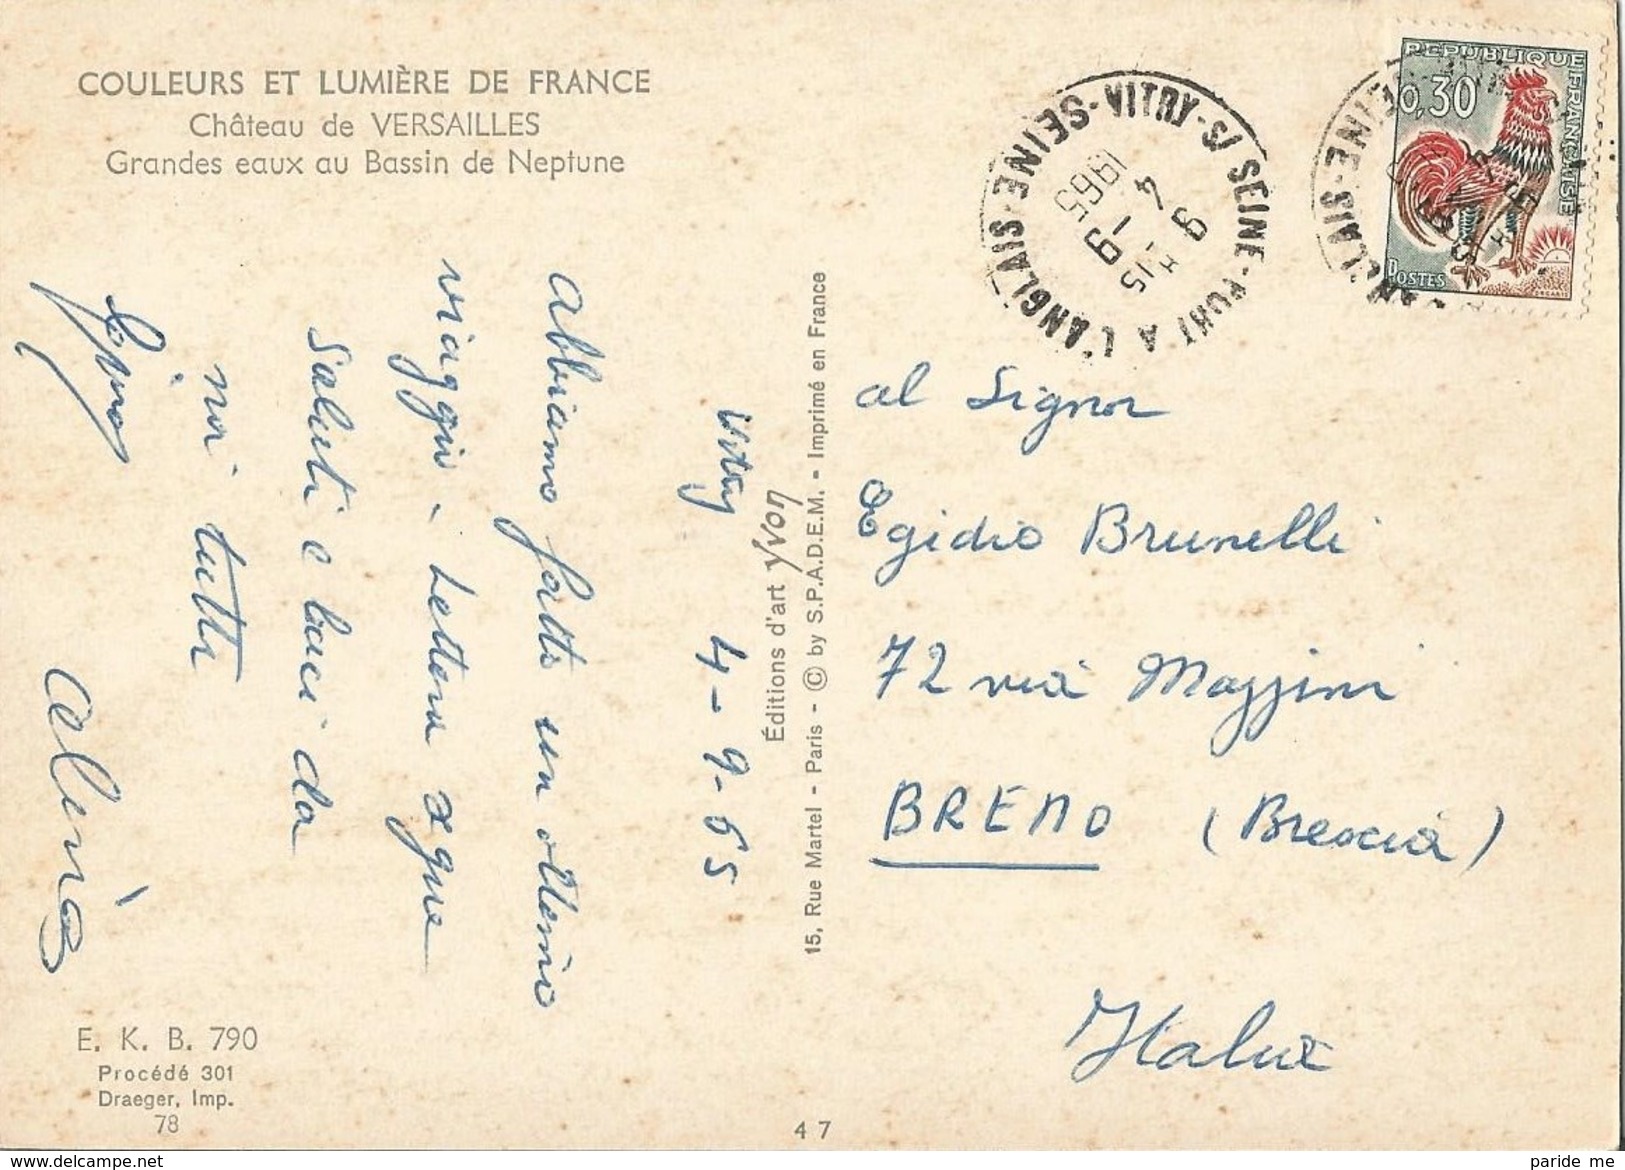 COULEURS ET LUMIÈRE DE FRANCE
Château de VERSAILLES
Grandes eaux au Bassin de Neptune
Vitry 4-9-65
Abbiamo fatto un ottimo
viaggio, Lettera segue
Saluti e baci da
noi tutti
E. K. B. 790
Procédé 301
Draeger, Imp.
78
Éditions d'art YVON
15, Rue Martel - Paris - © by S.P.A.D.E.M. - Imprimé en France
47
VITRY-S/SEINE-PORT A L'ANGLAIS-SEINE
1965
REPUBLIQUE FRANÇAISE
0,30
POSTES
DECARIS
al Signor
Egidio Brunelli
72 via Mazzini
BRENO (Brescia)
Italia
www.delcampe.net
paride me